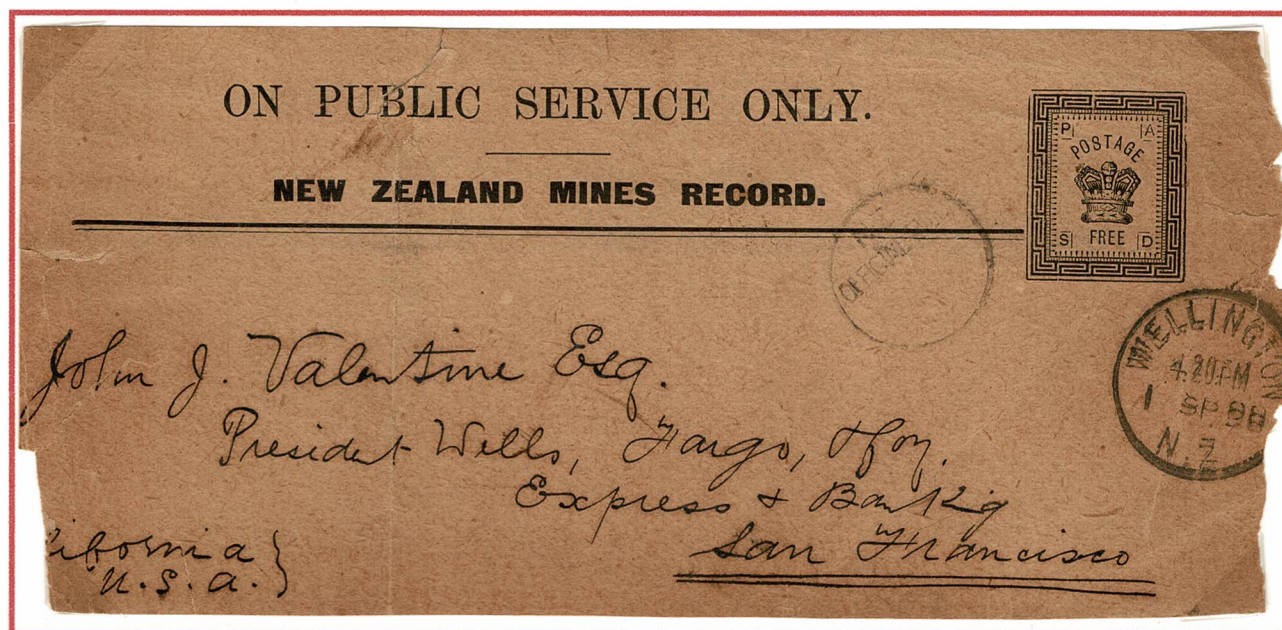 ON PUBLIC SERVICE ONLY.
NEW ZEALAND MINES RECORD.
P A
POSTAGE
FREE
S D
OFFICIAL
WELLINGTON
4.20.PM
1 SP.98
N.Z
John J. Valentine Esq.
President Wells, Fargo, & Coy.
Express & Bankg
San Francisco
lifornia }
U.S.A. }